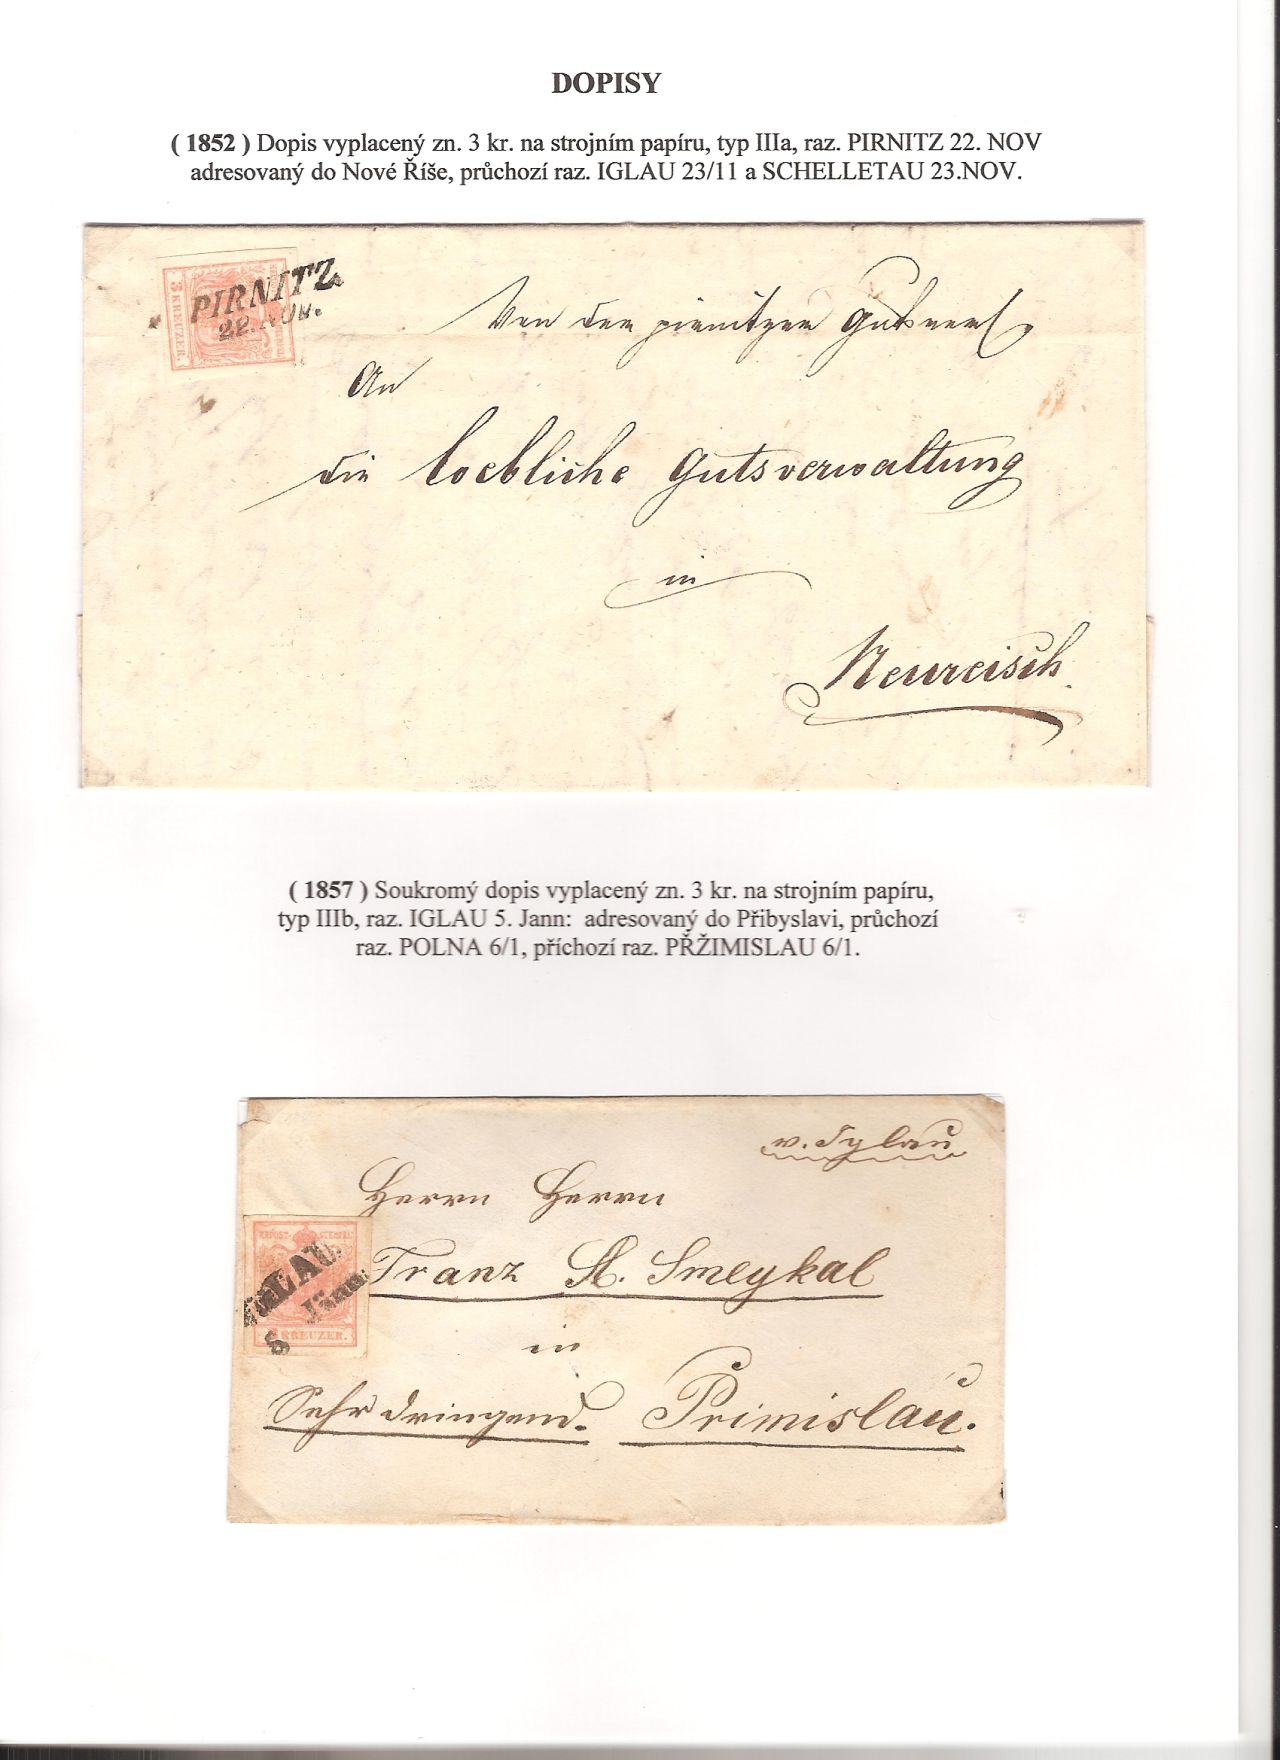 DOPISY
( 1852 ) Dopis vyplacený zn. 3 kr. na strojním papíru, typ IIIa, raz. PIRNITZ 22. NOV
adresovaný do Nové Říše, průchozí raz. IGLAU 23/11 a SCHELLETAU 23.NOV.
3 KREUZER.
PIRNITZ
22. NOV.
Von der pirnitzer Gutsverl
An
die loebliche Gutsverwaltung
in
Neureisch
( 1857 ) Soukromý dopis vyplacený zn. 3 kr. na strojním papíru,
typ IIIb, raz. IGLAU 5. Jann: adresovaný do Přibyslavi, průchozí
raz. POLNA 6/1, příchozí raz. PŘŽIMISLAU 6/1.
v. Iglau
Herrn Herrn
Franz A. Smeykal
in
Sehr dringend. Primislau.
KKPOST-STEMPEL
IGLAU
5 Jänn:
3 KREUZER.